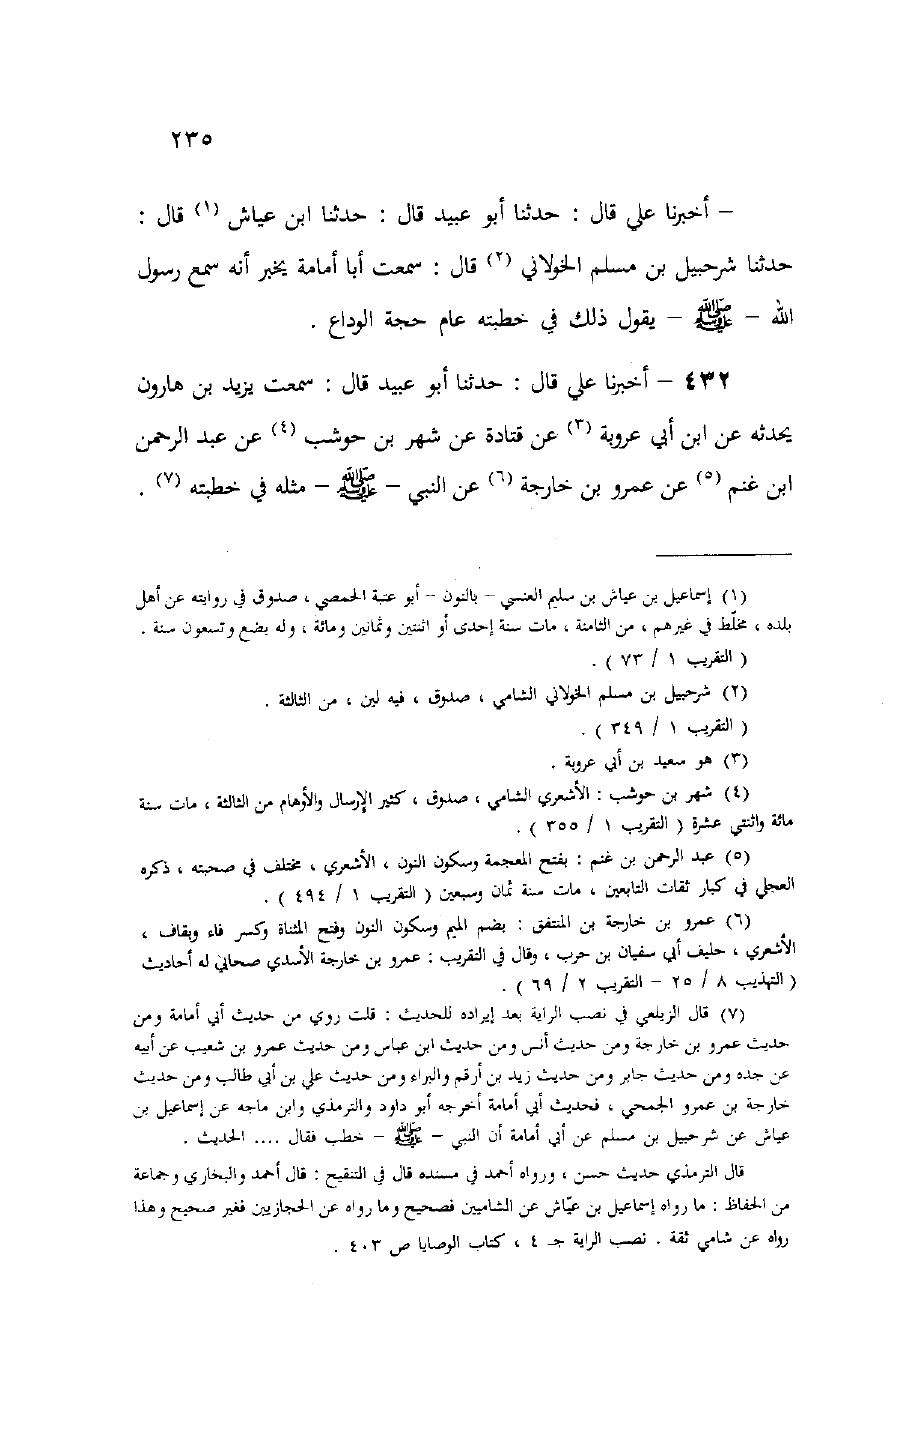 ٢٣٥
– أخبرنا علي قال : حدثنا أبو عبيد قال : حدثنا ابن عياش (١) قال :
حدثنا شرحبيل بن مسلم الخولاني (٢) قال : سمعت أبا أمامة يخبر أنه سمع رسول
الله – ﷺ – يقول ذلك في خطبته عام حجة الوداع .
٤٣٢ – أخبرنا علي قال : حدثنا أبو عبيد قال : سمعت يزيد بن هارون
يحدثه عن ابن أبي عروبة (٣) عن قتادة عن شهر بن حوشب (٤) عن عبد الرحمن
ابن غنم (٥) عن عمرو بن خارجة (٦) عن النبي – ﷺ – مثله في خطبته (٧) .
(١) إسماعيل بن عياش بن سليم العنسي – بالنون – أبو عتبة الحمصي ، صدوق في روايته عن أهل
بلده ، مخلّط في غيرهم ، من الثامنة ، مات سنة إحدى أو اثنتين وثمانين ومائة ، وله بضع وتسعون سنة .
( التقريب ١ / ٧٣ ) .
(٢) شرحبيل بن مسلم الخولاني الشامي ، صدوق ، فيه لين ، من الثالثة .
( التقريب ١ / ٣٤٩ ) .
(٣) هو سعيد بن أبي عروبة .
(٤) شهر بن حوشب : الأشعري الشامي ، صدوق ، كثير الإرسال والأوهام من الثالثة ، مات سنة
مائة واثنتي عشرة ( التقريب ١ / ٣٥٥ ) .
(٥) عبد الرحمن بن غنم : بفتح المعجمة وسكون النون ، الأشعري ، مختلف في صحبته ، ذكره
العجلي في كبار ثقات التابعين ، مات سنة ثمان وسبعين ( التقريب ١ / ٤٩٤ ) .
(٦) عمرو بن خارجة بن المنتفق : بضم الميم وسكون النون وفتح المثناة وكسر فاء وبقاف ،
الأشعري ، حليف أبي سفيان بن حرب ، وقال في التقريب : عمرو بن خارجة الأسدي صحابي له أحاديث
( التهذيب ٨ / ٢٥ – التقريب ٢ / ٦٩ ) .
(٧) قال الزيلعي في نصب الراية بعد إيراده للحديث : قلت روي من حديث أبي أمامة ومن
حديث عمرو بن خارجة ومن حديث أنس ومن حديث ابن عباس ومن حديث عمرو بن شعيب عن أبيه
عن جده ومن حديث جابر ومن حديث زيد بن أرقم والبراء ومن حديث علي بن أبي طالب ومن حديث
خارجة بن عمرو الجمحي ، فحديث أبي أمامة أخرجه أبو داود والترمذي وابن ماجه عن إسماعيل بن
عياش عن شرحبيل بن مسلم عن أبي أمامة أن النبي – ﷺ – خطب فقال .... الحديث .
قال الترمذي حديث حسن ، ورواه أحمد في مسنده قال في التنقيح : قال أحمد والبخاري وجماعة
من الحفاظ : ما رواه إسماعيل بن عيّاش عن الشاميين فصحيح وما رواه عن الحجازيين فغير صحيح وهذا
رواه عن شامي ثقة . نصب الراية جـ ٤ ، كتاب الوصايا ص ٤٠٣ .